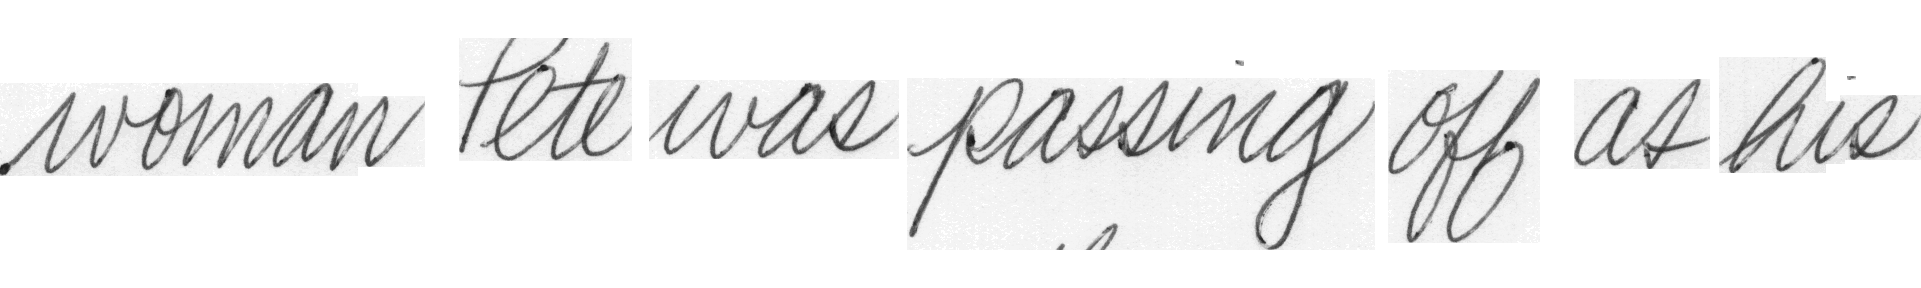 woman Pete was passing off as his